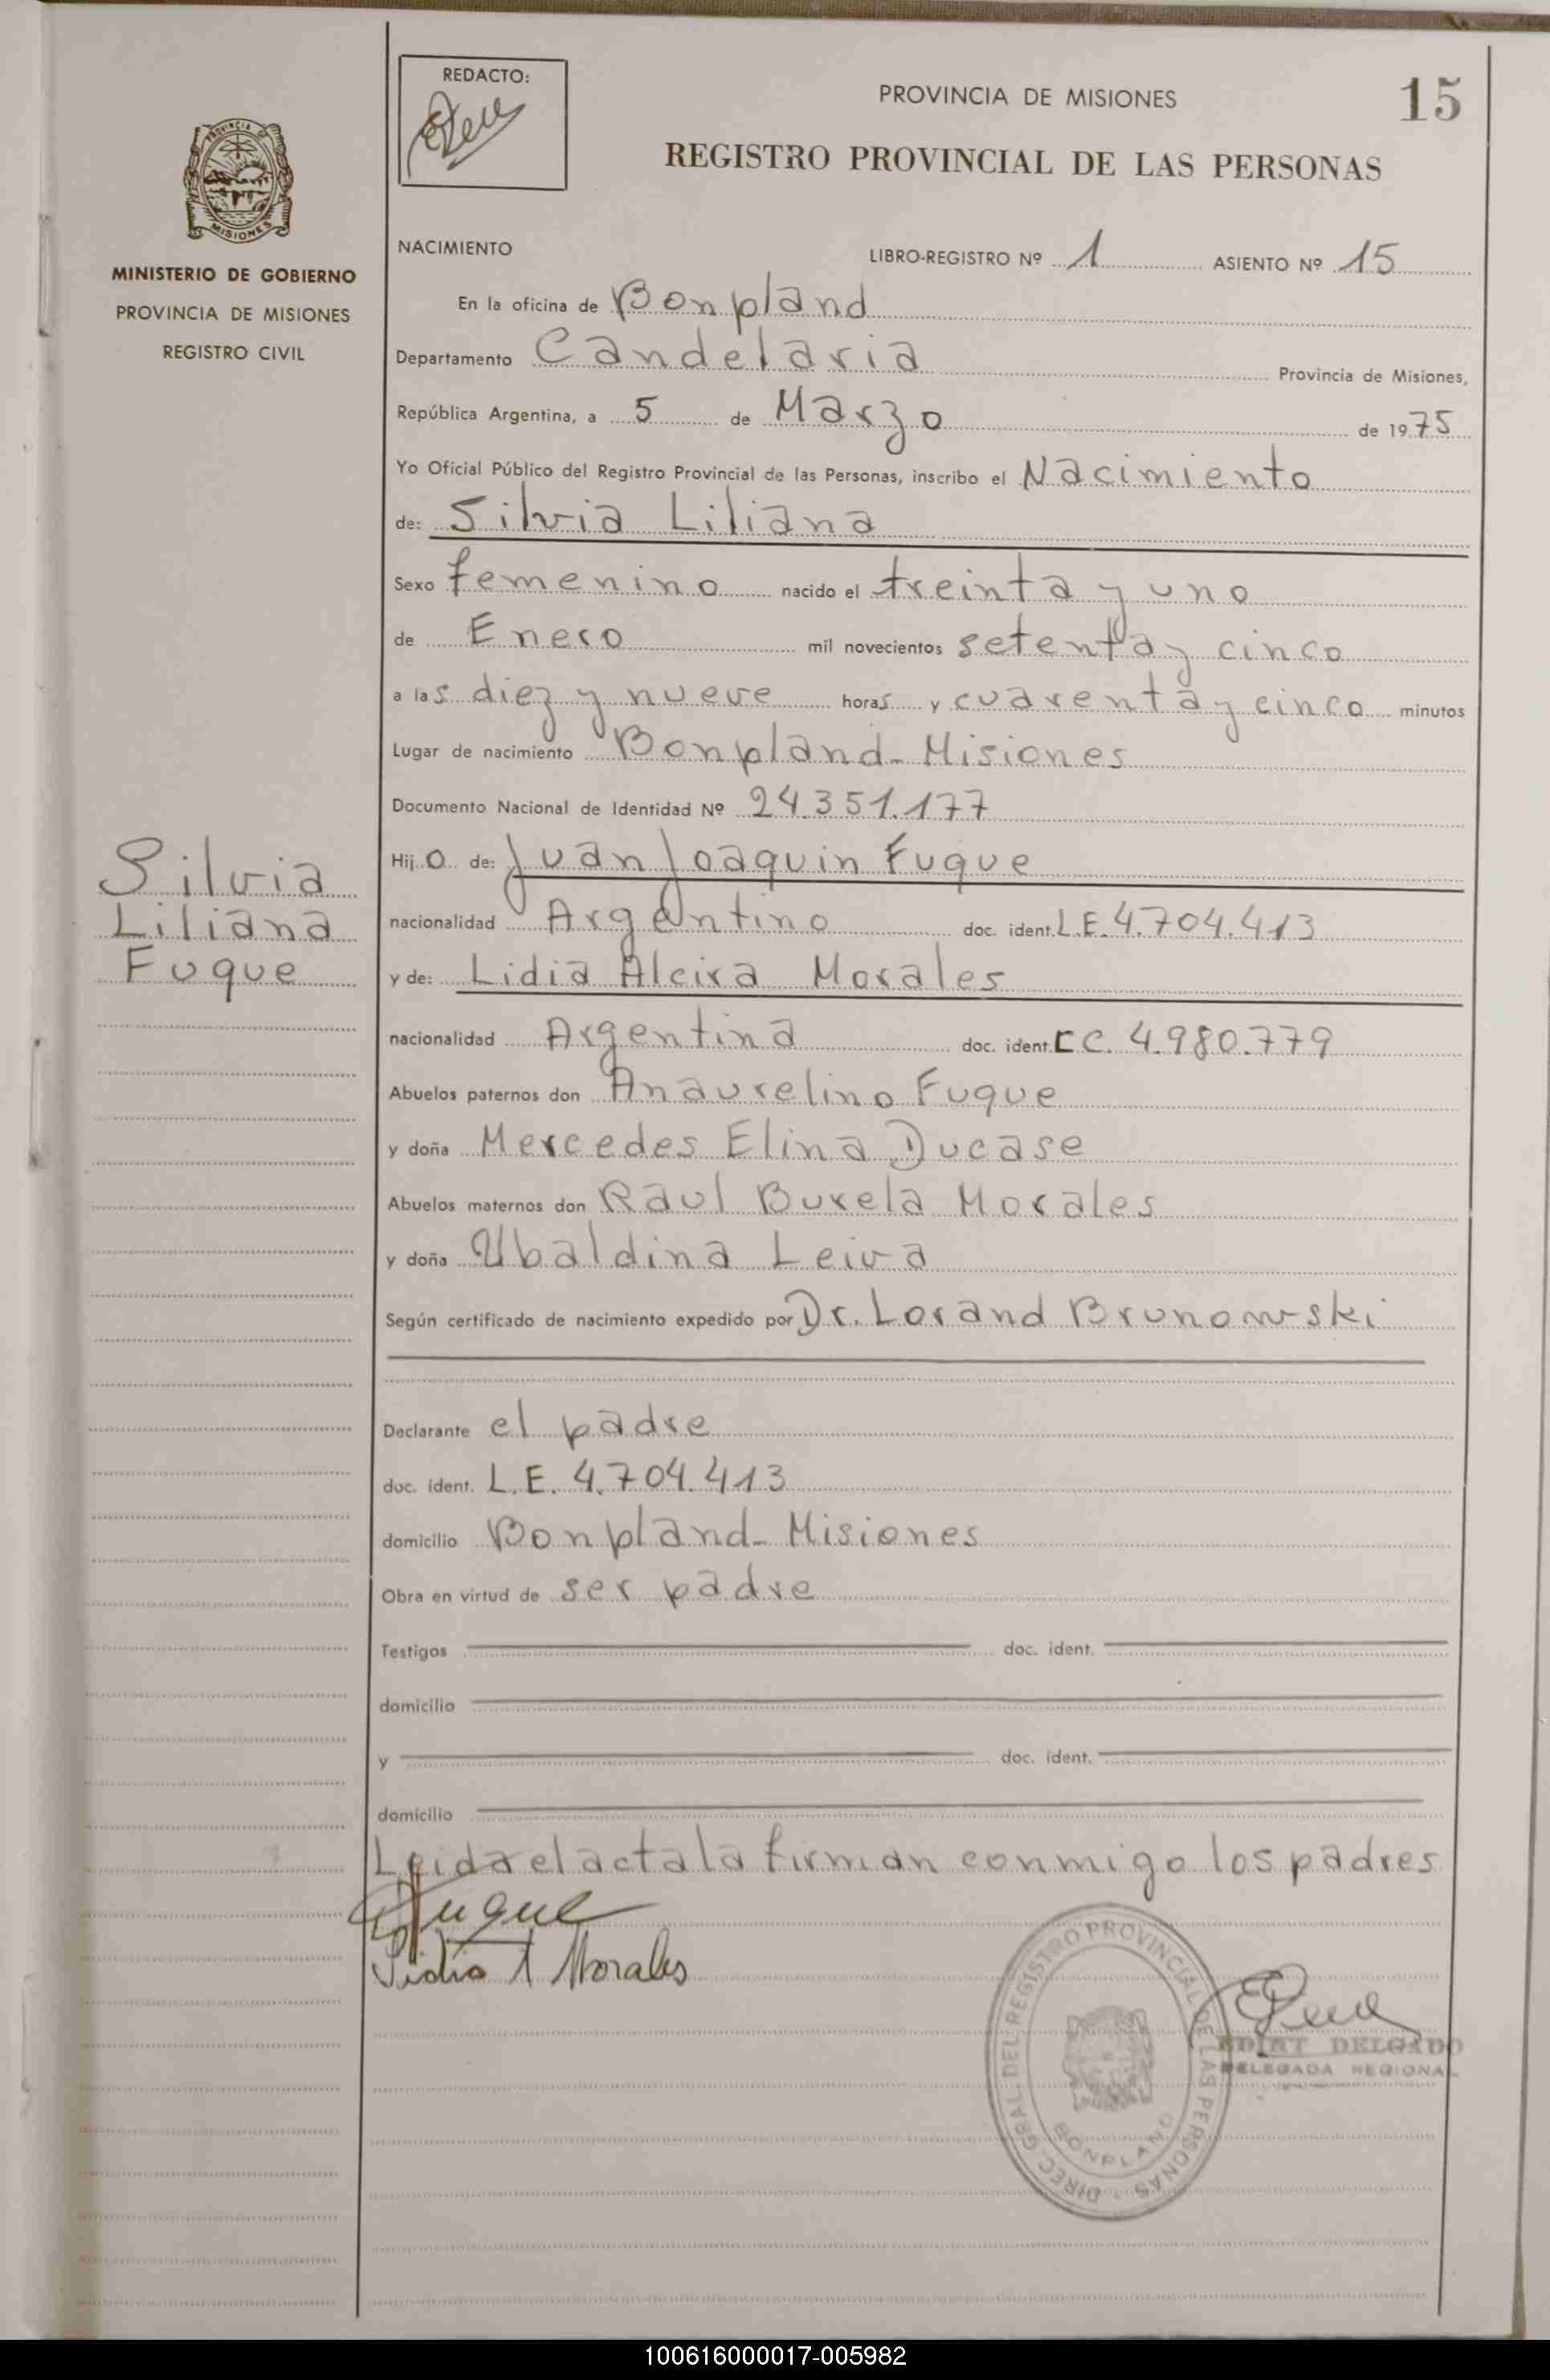 REDACTO:
PROVINCIA DE MISIONES
15
REGISTRO PROVINCIAL DE LAS PERSONAS
MINISTERIO DE GOBIERNO
PROVINCIA DE MISIONES
REGISTRO CIVIL
NACIMIENTO
LIBRO-REGISTRO Nº 1 ASIENTO Nº 15
En la oficina de Bonpland
Departamento Candelaria Provincia de Misiones,
República Argentina, a 5 de Marzo de 1975
Yo Oficial Público del Registro Provincial de las Personas, inscribo el Nacimiento
de: Silvia Liliana
Sexo femenino nacido el treinta y uno
de Enero mil novecientos setenta y cinco
a las diez y nueve horas y cuarenta y cinco minutos
Lugar de nacimiento Bonpland - Misiones
Documento Nacional de Identidad Nº 24.351.177
Hij o de: Juan Joaquin Fuque
nacionalidad Argentino doc. ident. L.E. 4.704.413
y de: Lidia Alcira Morales
nacionalidad Argentina doc. ident. C C. 4.980.779
Silvia
Liliana
Fuque
Abuelos paternos don Anaurelino Fuque
y doña Mercedes Elina Ducase
Abuelos maternos don Raul Burela Morales
y doña Ubaldina Leiva
Según certificado de nacimiento expedido por Dr. Lorand Brunowski
Declarante el padre
doc. ident. L.E. 4.704.413
domicilio Bonpland - Misiones
Obra en virtud de ser padre
Testigos doc. ident.
domicilio
y doc. ident.
domicilio
Leida el acta la firman conmigo los padres
Fuque
Lidia A Morales
DIREC. GRAL. DEL REGISTRO PROVINCIAL DE LAS PERSONAS -
BONPLAND
DELGADO
DELEGADA REGIONAL
100616000017-005982